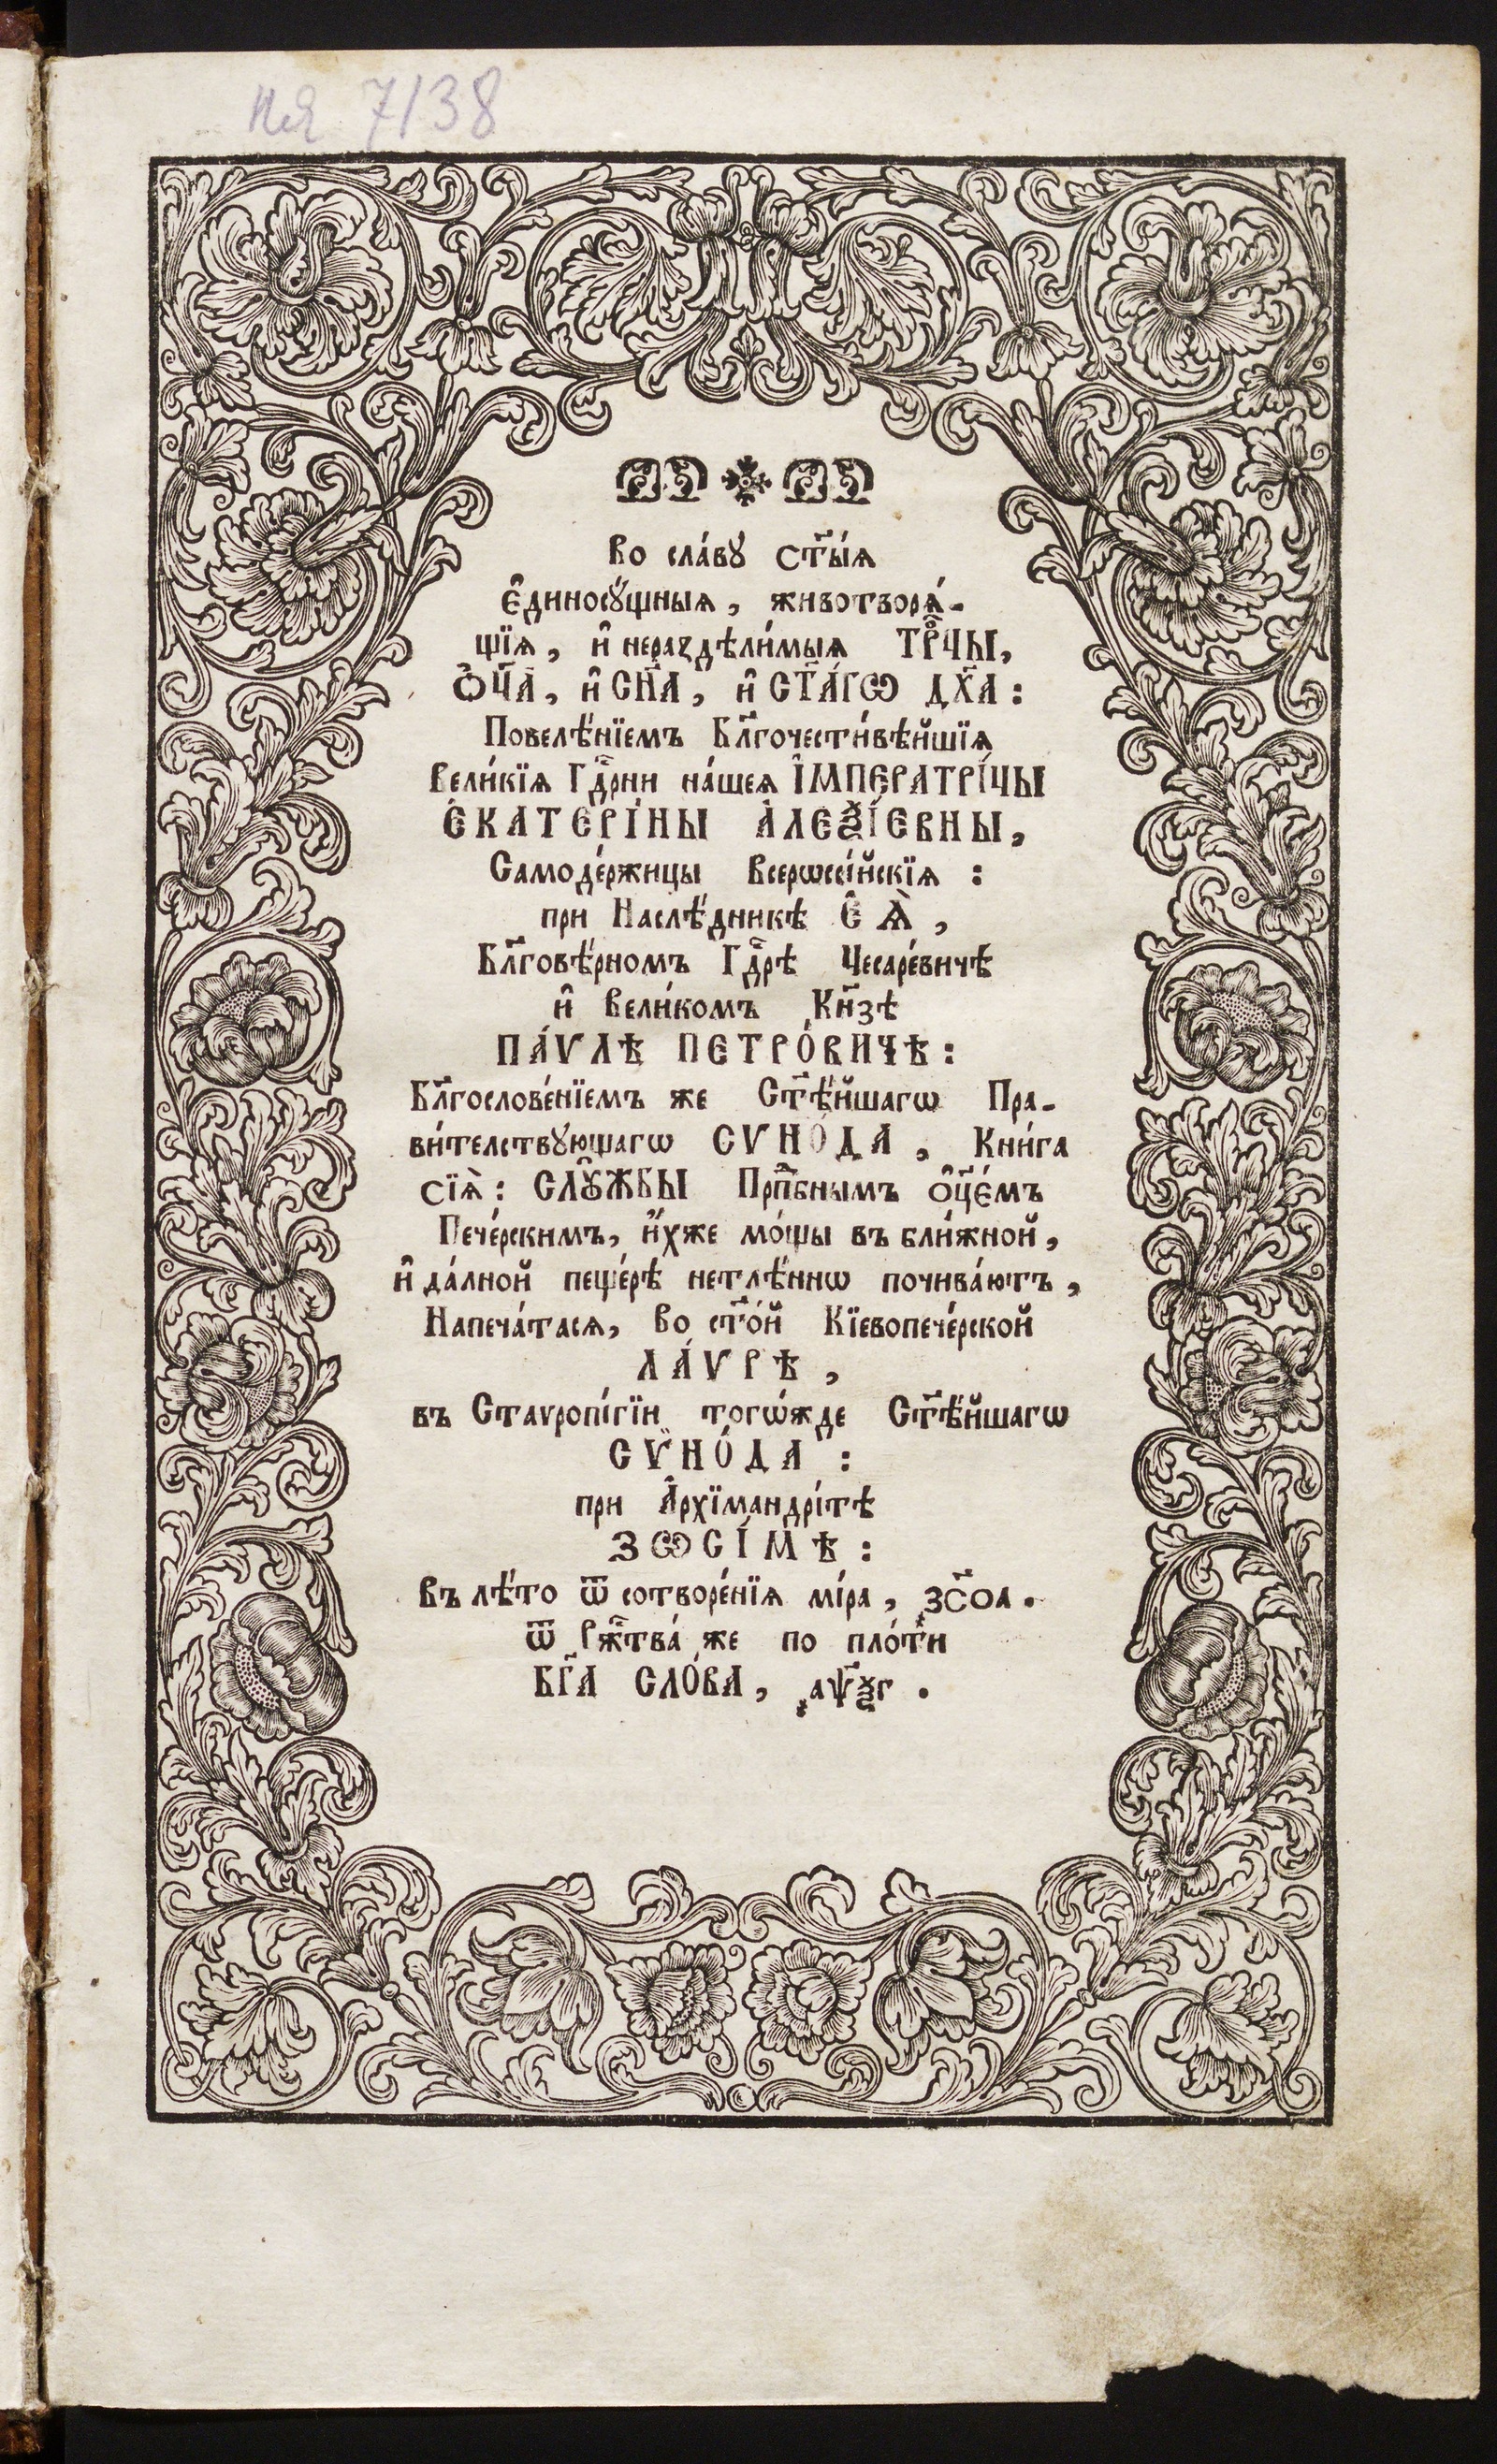 пя 7138
Во сла́вꙋ ст҃ы́ѧ
є҆диносꙋ́щныѧ, животворѧ́-
щїѧ, и҆ нераздѣли́мыѧ ТРⷪ҇ЦЫ,
Ѻ҆Ц҃А̀, и҆ СН҃А, и҆ СТ҃А́ГѠ ДХ҃А:
Повелѣ́нїемъ Бл҃гочести́вѣйшїѧ
Вели́кїѧ Гдⷭ҇рни на́шеѧ І҆МПЕРАТРІ́ЦЫ
Є҆КАТЕРІ́НЫ А҆ЛЕѮІ́ЕВНЫ,
Самоде́ржицы Всерѡссі́йскїѧ :
при Наслѣ́дникѣ Є҆Ѧ̀,
Бл҃говѣ́рномъ Гдⷭ҇рѣ Цесаре́вичѣ
и҆ Вели́комъ Кн҃зѣ
ПА́ѴЛѢ ПЕТРО́ВИЧѢ:
Бл҃гослове́нїемъ же Ст҃ѣ́йшагѡ Пра-
ви́телствꙋющагѡ СѴНО́ДА, Кни́га
сїѧ̀: СЛꙊ́ЖБЫ Прпⷣбнымъ ѻ҆ц҃є́мъ
Пече́рскимъ, и҆́хже мо́щы въ бли́жной,
и҆ да́лной пеще́рѣ нетлѣ́ннѡ почива́ютъ,
Напеча́тасѧ, во ст҃о́й Кїевопече́рской
ЛА́ѴРѢ,
въ Ставропі́гїи тогѡ́жде Ст҃ѣ́йшагѡ
СѴНО́ДА :
при А҆рхїмандрі́тѣ
ЗѠСІ́МѢ :
Въ лѣ́то ѿ сотворе́нїѧ мі́ра, ҂зс҃оа.
ѿ Ржⷭ҇тва́ же по пло́ти
БГ҃А СЛО́ВА, ҂аѱ҃ѯг .